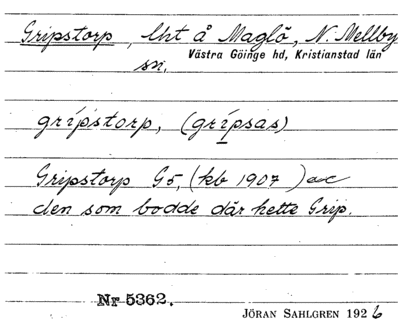 Gripstorp, lht å Maglö, N. Mellby
Västra Göinge hd, Kristianstad län
sn.
gripstorp, (gripsas)
Gripstorp G5, (kb 1907) a-c
den som bodde där hette Grip.
Nr 5362.
JÖRAN SAHLGREN 1926